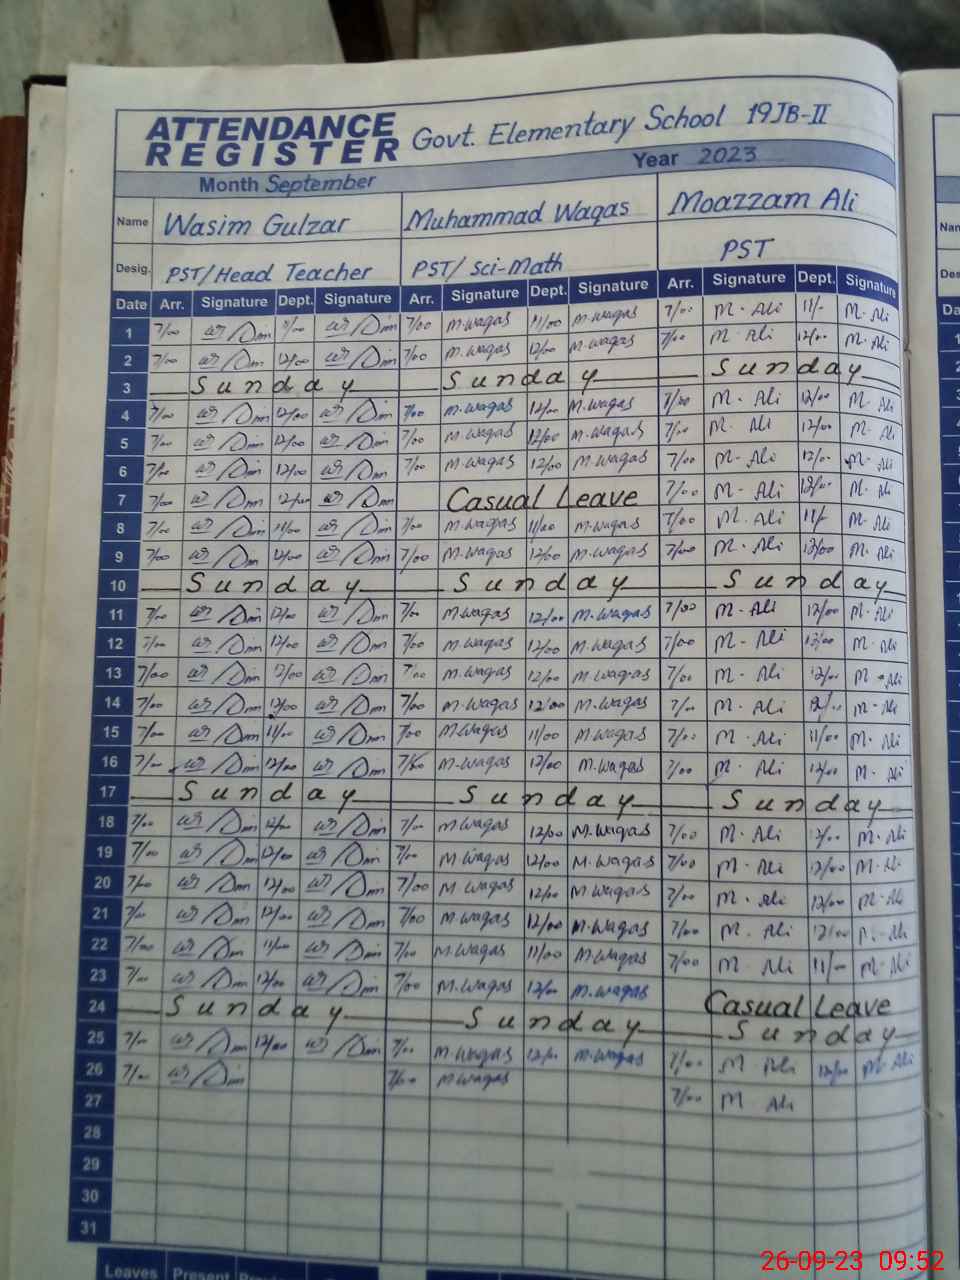 ATTENDANCE REGISTER Govt. Elementary School 19JB-II
Month September Year 2023
Name Wasim Gulzar Muhammad Waqas Moazzam Ali
Desig. PST/Head Teacher PST/Sci-Math PST
Date Arr. Signature Dept. Signature Arr. Signature Dept. Signature Arr. Signature Dept. Signature
1 7/00 11/00 7/00 M.waqas 11/00 M.waqas 7/00 M. Ali 11/- M. Ali
2 7/00 12/00 7/00 M.waqas 12/00 M.waqas 7/00 M. Ali 12/00 M. Ali
3 Sunday Sunday Sunday
4 7/00 12/00 7/00 M.waqas 12/00 M.waqas 7/00 M. Ali 12/00 M. Ali
5 7/00 12/00 7/00 M.waqas 12/00 M.waqas 7/00 M. Ali 12/00 M. Ali
6 7/00 12/00 7/00 M.waqas 12/00 M.waqas 7/00 M. Ali 12/00 M. Ali
7 7/00 12/00 Casual Leave 7/00 M. Ali 12/00 M. Ali
8 7/00 11/00 7/00 M.waqas 11/00 M.waqas 7/00 M. Ali 11/ M. Ali
9 7/00 12/00 7/00 M.waqas 12/00 M.waqas 7/00 M. Ali 12/00 M. Ali
10 Sunday Sunday Sunday
11 7/00 12/00 7/00 M.waqas 12/00 M.waqas 7/00 M. Ali 12/00 M. Ali
12 7/00 12/00 7/00 M.waqas 12/00 M.waqas 7/00 M. Ali 12/00 M. Ali
13 7/00 12/00 7/00 M.waqas 12/00 M.waqas 7/00 M. Ali 12/00 M. Ali
14 7/00 12/00 7/00 M.waqas 12/00 M.waqas 7/00 M. Ali 12/00 M. Ali
15 7/00 11/00 7/00 M.waqas 11/00 M.waqas 7/00 M. Ali 11/00 M. Ali
16 7/00 12/00 7/00 M.waqas 12/00 M.waqas 7/00 M. Ali 12/00 M. Ali
17 Sunday Sunday Sunday
18 7/00 12/00 7/00 M.waqas 12/00 M.waqas 7/00 M. Ali 12/00 M. Ali
19 7/00 12/00 7/00 M.waqas 12/00 M.waqas 7/00 M. Ali 12/00 M. Ali
20 7/00 12/00 7/00 M.waqas 12/00 M.waqas 7/00 M. Ali 12/00 M. Ali
21 7/00 12/00 7/00 M.waqas 12/00 M.waqas 7/00 M. Ali 12/00 M. Ali
22 7/00 11/00 7/00 M.waqas 11/00 M.waqas 7/00 M. Ali 11/00 M. Ali
23 7/00 12/00 7/00 M.waqas 12/00 M.waqas Casual Leave
24 Sunday Sunday Sunday
25 7/00 12/00 7/00 M.waqas 12/00 M.waqas 7/00 M. Ali 12/00 M. Ali
26 7/00 7/00 M.waqas 7/00 M Ali
27
28
29
30
31
Leaves Present
26-09-23 09:52